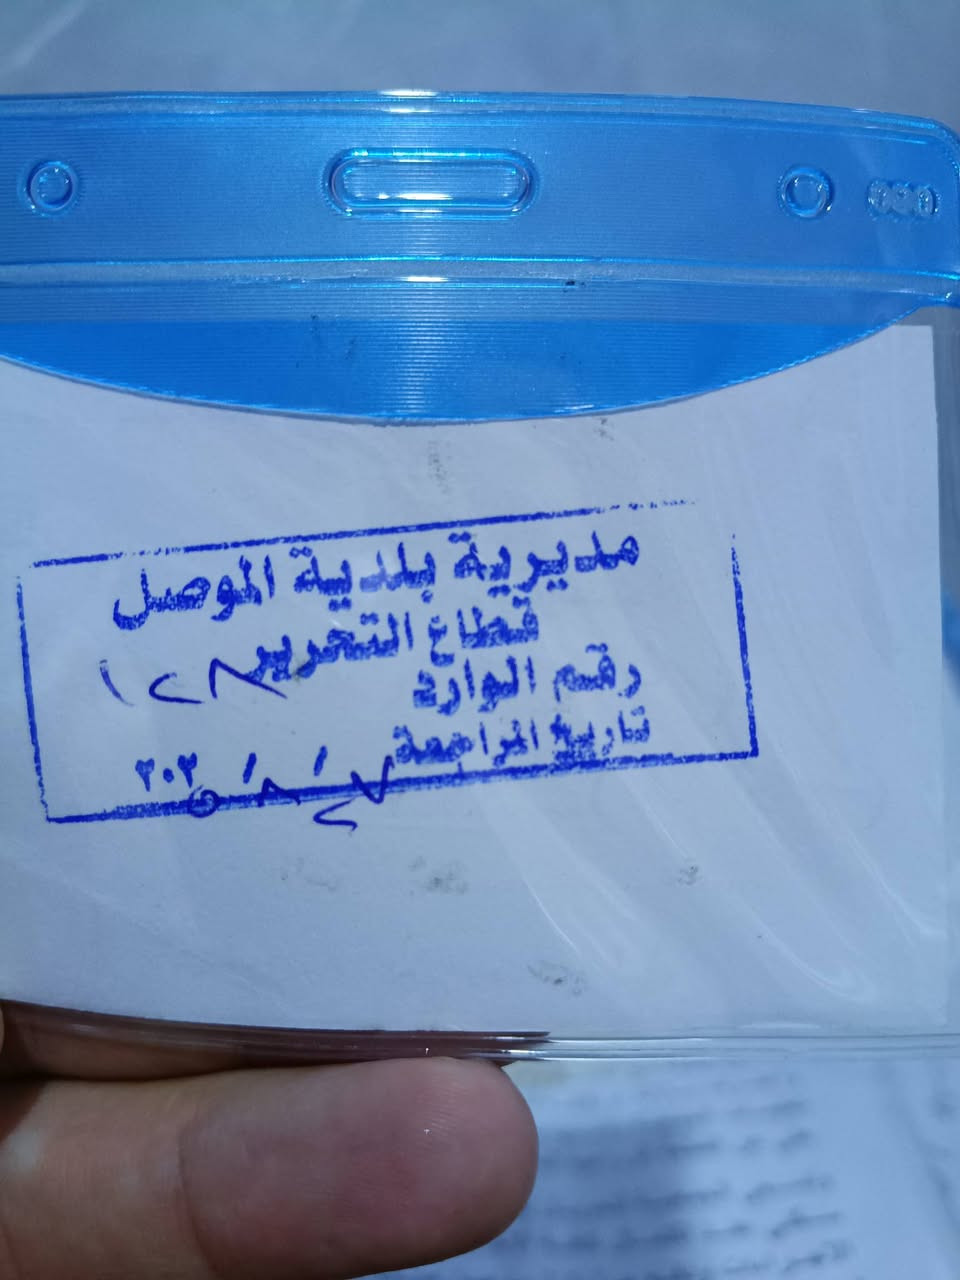 مديرية بلدية الموصل
قطاع التحرير
رقم الوارد ١٢٨
تاريخ المراجعة ٢٧ / ٨ / ٢٠٢٥